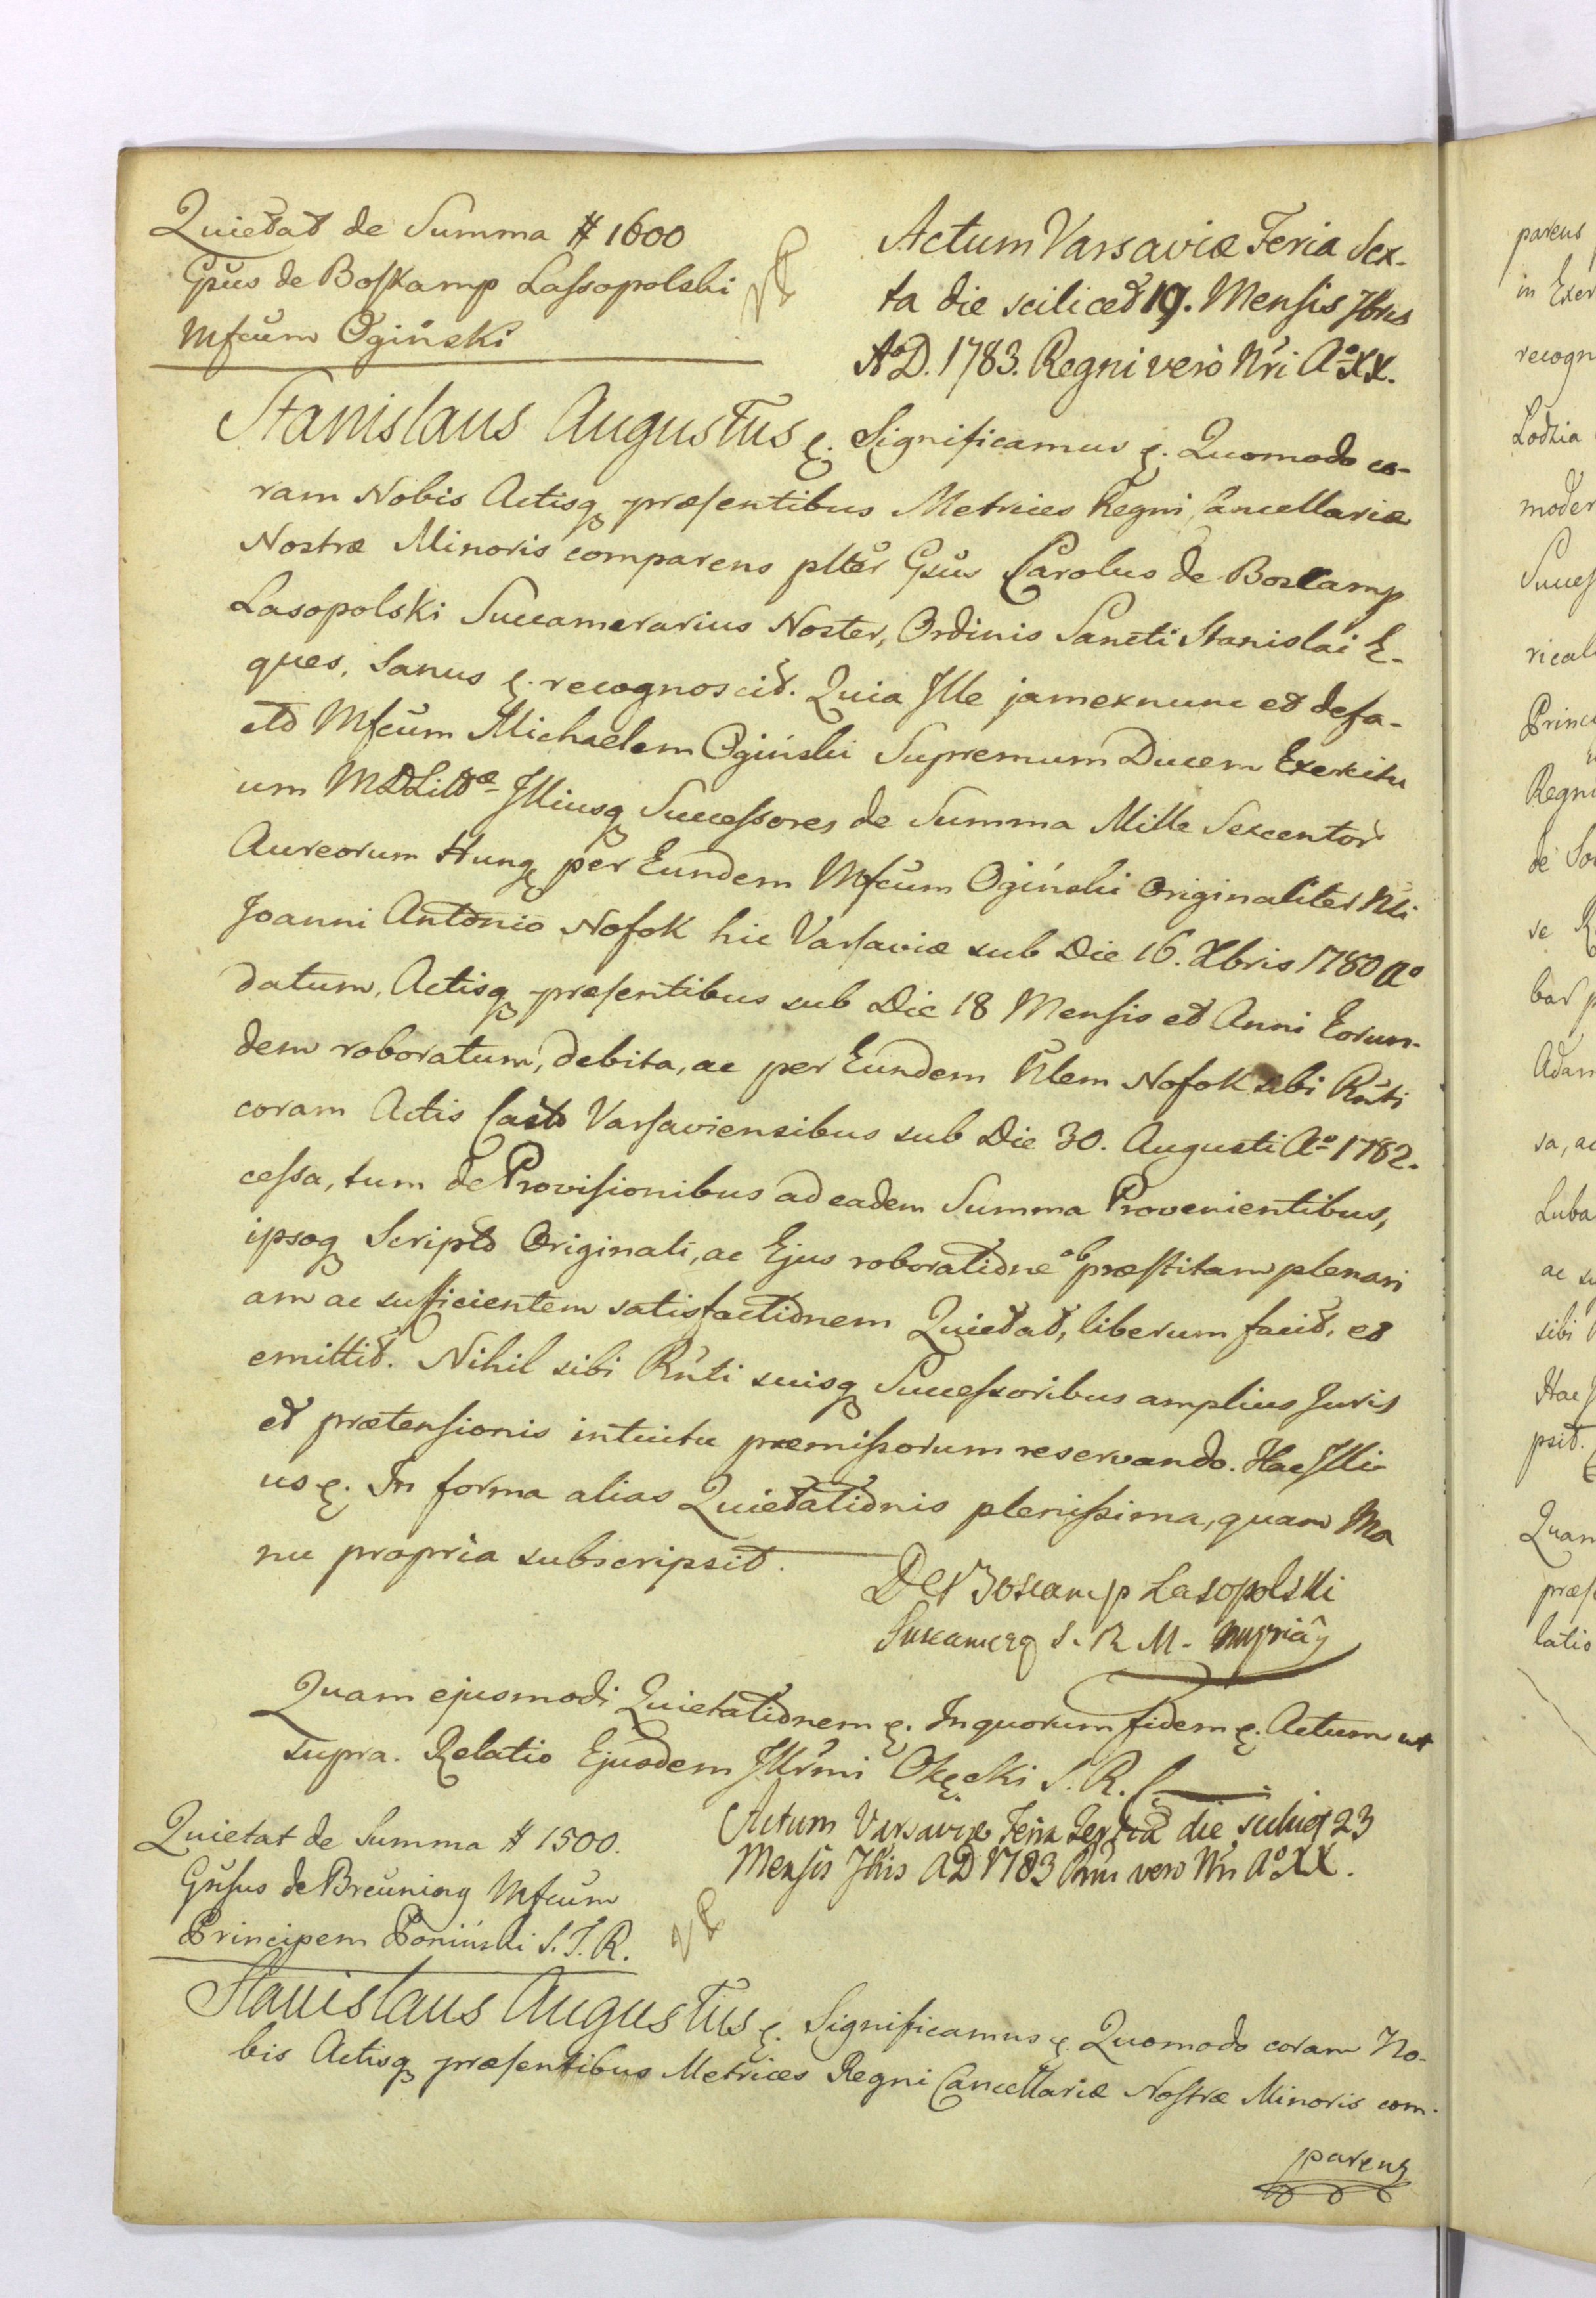 Quietat de Summa # 1600
Gsus de Boskamp Lassopolski
Mfcum Ogiński
Actum Varsaviæ Feria Sex-
ta die scilicet 19. Mensis 7bris
Ao D. 1783. Regni verò Nri Ao XX.
Stanislaus Augustus &. Significamus &. Quomodo co-
ram Nobis Actisq præsentibus Metrices Regni Cancellariæ
Nostræ Minoris comparens plter Gsus Carolus de Boscamp
Lasopolski Succamerarius Noster, Ordinis Sancti Stanislai E-
ques, Sanus &. recognoscit. Quia Ille jam exnunc et defa-
cto Mfcum Michaelem Ogiński Supremum Ducem Exercitu
um MDLittæ Illiusq Successores de Summa Mille Sexcentor
Aureorum Hung per Eundem Mfcum Ogiński Originaliter Nli
Joanni Antonio Nofok hic Varsaviæ sub Die 16. Xbris 1780 Ao
datum, Actisq præsentibus sub Die 18 Mensis et Anni Eorun-
dem roboratum, debita, ac per Eundem Nlem Nofok sibi Rnti
coram Actis Castr Varsaviensibus sub Die 30. Augusti Ao 1782.
cessa, tum de Provisionibus ad eadem Summa Provenientibus,
ipsoq Scripto Originali, ac Ejus roboratione ob præstitam plenari
am ac sufficientem satisfactionem Quietat, liberum facit, et
emittit. Nihil sibi Rnti suisq Successoribus amplius Juris
et prætensionis intuitu præmissorum reservando. Hac Illi
us &. In forma alias Quietationis plenissima, quam Ma
nu propria subscripsit.
De Boscamp Lasopolski
Succamerq S. R. M. mppria
Quam ejusmodi Quietationem &. In quorum fidem &. Actum ut
supra. Relatio Ejusdem Illrmi Okęcki S. R. C.
Quietat de Summa # 1500.
Gnsus de Breuning Mfcum
Principem Poniński S. T. R.
Actum Varsaviæ Feria Tertia die scilict 23
Mensis 7bris AD 1783 Rni vero Nri Ao XX.
Stanislaus Augustus &. Significamus &. Quomodo coram No-
bis Actisq præsentibus Metrices Regni Cancellariæ Nostræ Minoris com-
parens
parens
in Exer
recogn
Lodzia
moder
Succes
rical
Princ
Regni
de So
se R
bar p
Adam
sa, ac
Luba
ac su
sibi
Hac J
psit.
Quam
præs
latio